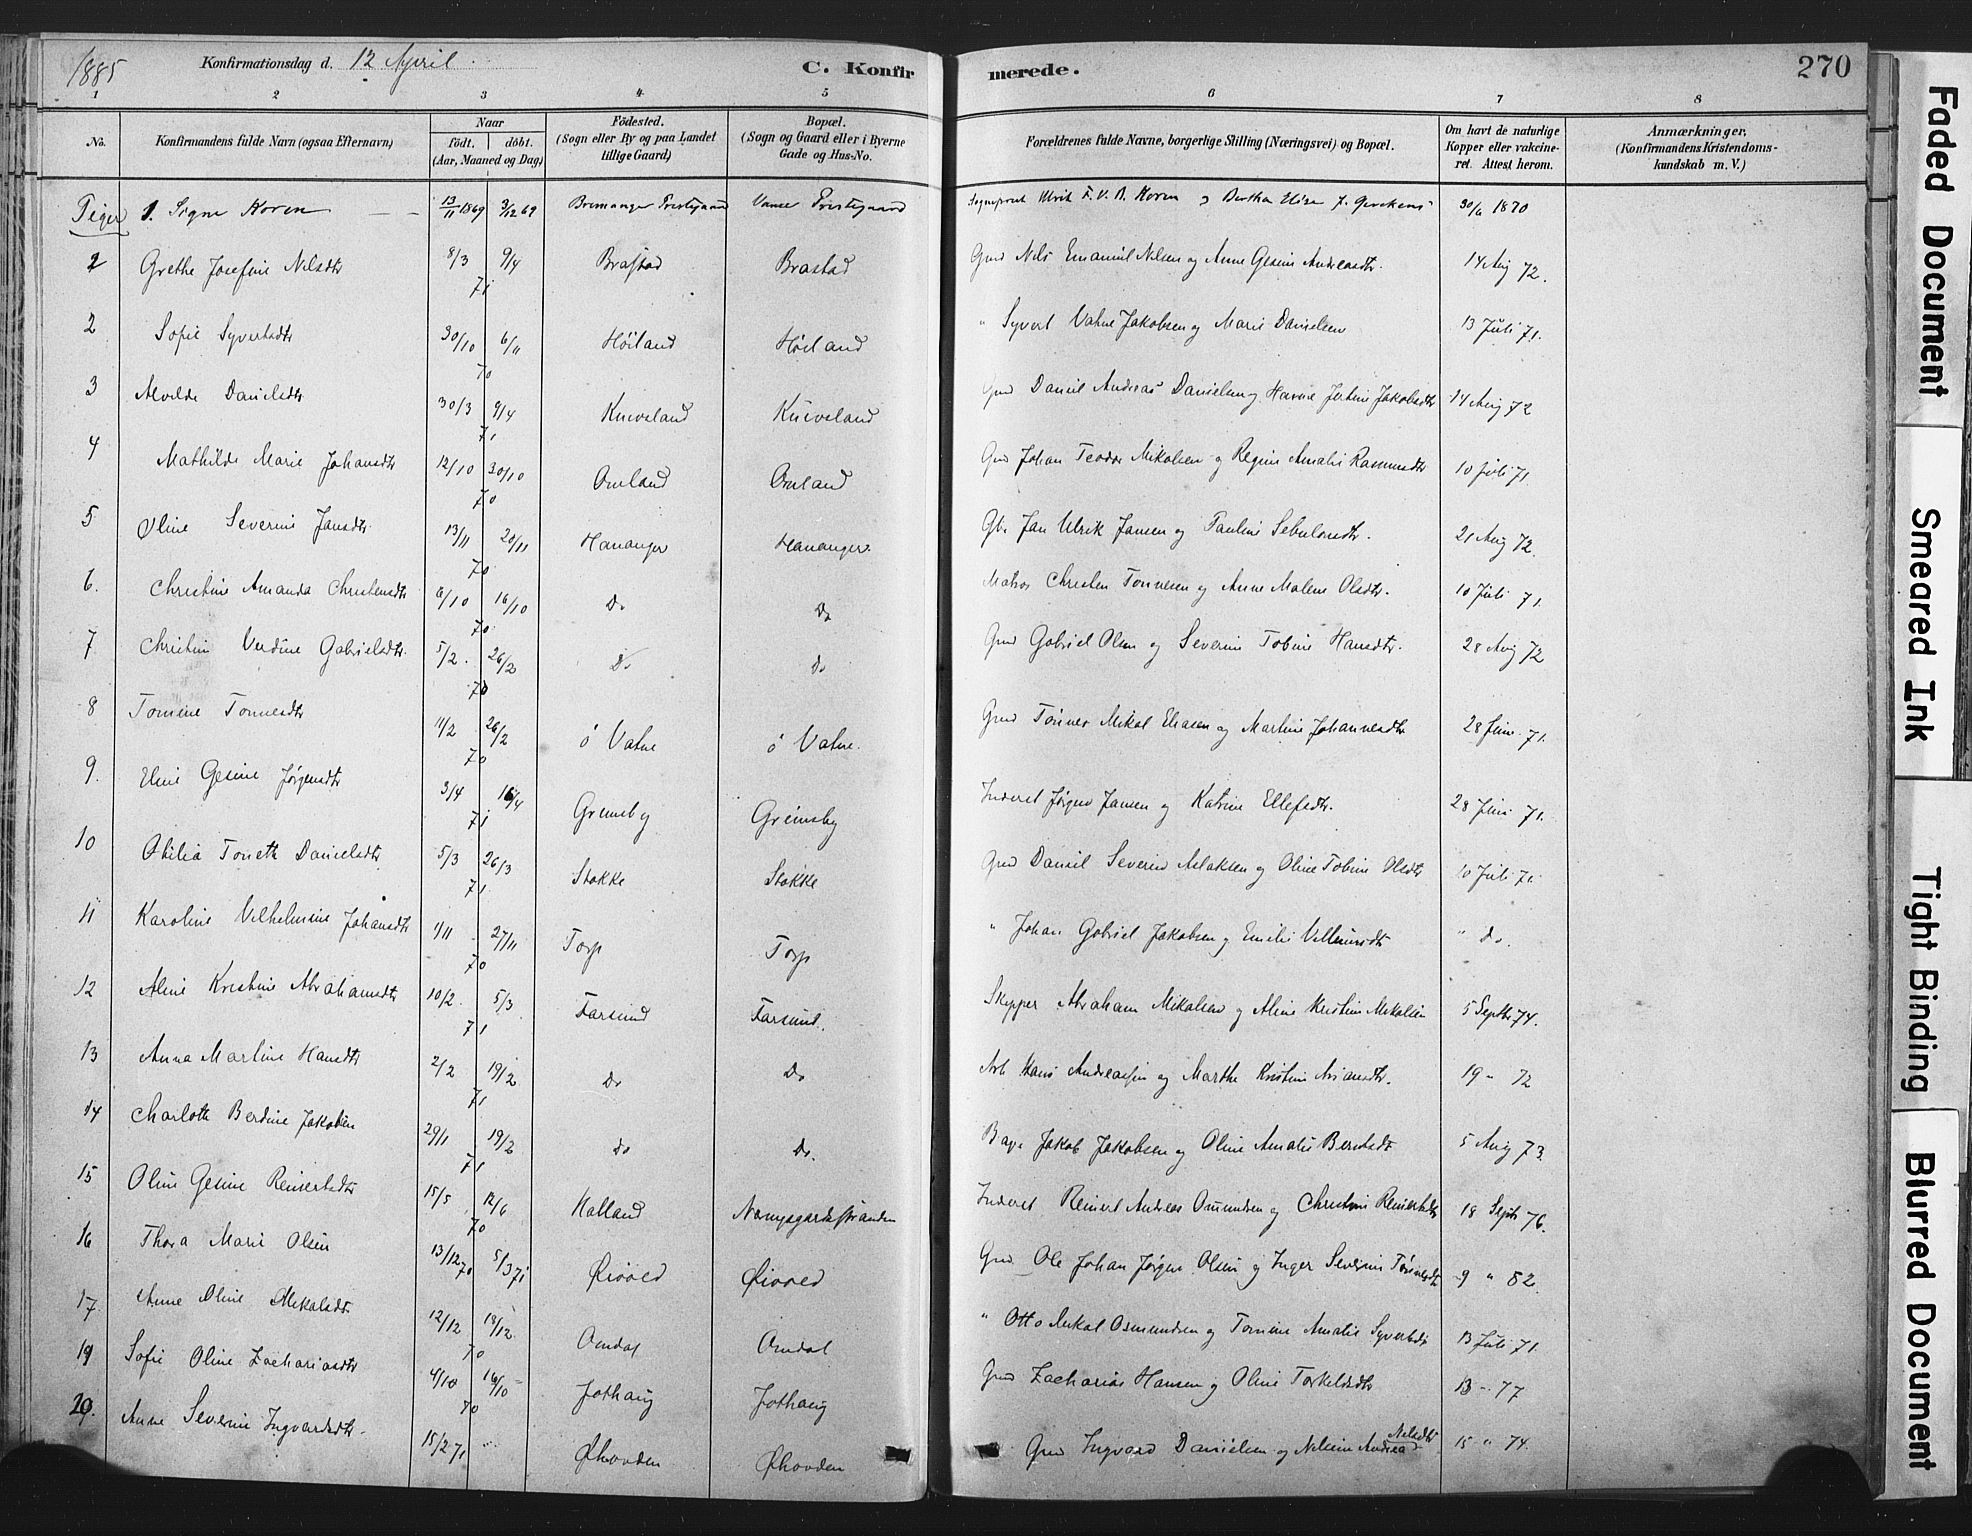 1885 Konfirmationsdag d. 12 April. C. Konfirmerede. 270
1 2 3 4 5 6 7 8
No. Konfirmandens fulde Navn (ogsaa Efternavn) Naar født. døbt. (Aar, Maaned og Dag) Fødested. (Sogn eller By og paa Landet tillige Gaard) Bopæl. (Sogn og Gaard eller i Byerne Gade og Hus-No. Forældrenes fulde Navne, borgerlige Stilling (Næringsvei) og Bopæl. Om havt de naturlige Kopper eller vaccineret. Attest herom. Anmærkninger. (Konfirmandens Kristendomskundskab m. V.)
Piger 1. Signe Koren 13/11 1869 3/12 69 Bremanger Prestegaard Vanse Prestegaard Sogneprest Ulrik F. V. A. Koren og Berthe Elise f. Gerckens 30/6 1870
2 Grethe Josefine Nilsdtr 8/3 9/4 71 Brastad Brastad Grmd Nels Emanuel Nilsen og Anne Gesine Andreasdtr. 14 Aug 72.
2 Sofie Syvertsdtr 30/10 6/11 70 Høiland Høiland " Syvert Vatne Jakobsen og Marie Danielsen 13 Juli 71.
3 Alvilde Danielsdtr 30/3 9/4 71 Knivsland Knivsland Grmd Daniel Andreas Danielsen og Jakobsdtr 14 Aug 72
4 Mathilde Marie Johansdtr 12/10 30/10 70 Omland Omland Grmd Johan Teodor Mikalsen og Regine Amalie Rasmusdtr 10 Juli 71.
5 Oline Severine Jansdtr 13/11 20/11 70 Hananger Hananger. Gbr. Jan Ulrik Jansen og Pauline Sebulonsdtr. 21 Aug 72.
6. Christine Amanda Christensdtr 6/10 16/10 70. Do Do Matros Christen Tonnesen og Anne Malene Olsdtr. 10 Juli 71.
7 Christine Verdine Gabrielsdtr. 5/2. 26/2 70 Do Do Grmd Gabriel Olsen og Severine Tobine Hansdtr. 28 Aug 72
8 Tomine Tonnesdtr 11/2 26/2 70 ø Vatne ø Vatne. Grmd Tönnes Mikal Eliasen og Martine Johannesdtr 28 Juni. 71.
9. Eline Gesine Jørgensdtr 3/4 16/4 71 Gremsby Greimsby Inderst Jørgen Jansen og Katrine Ellefsdtr. 28 Juni 71.
10 Otilia Toneth Danielsdtr 5/3 26/3 71. Stokke Stokke Grmd Daniel Severin Aslaksen og Oline Tobine Olsdtr 10 Juli 71.
11 Karoline Vilhelmine Johansdtr 1/11 27/11 70 Torp Torp " Johan Gabriel Jakobsen og Emilie " do.
12 Aline Kristine Abrahamsdtr 10/2. 5/3 71 Farsund Farsund. Skipper Abraham Mikalsen og Aline Kristine Mikalsen 5 Septb 74.
13 Anna Martine Hansdtr 2/2 19/2 71 Do Do Arb Hans Andreassen og Marthe Kristine 19 - 72
14 Charlotte Berdine Jakobsen 29/1 19/2 71 do Do. Jakob Jakobsen og Oline Amalie Berntsdtr 5 Aug 73.
15 Oline Gesine Reinertsdtr 15/5 12/6 70 Halland Inderst Reinert Andreas Osmundsen og Christine Reinertsdtr 18 Septb 76.
16 Thora Marie Olsen 13/12 70 5/3 71 Grmd Ole Johan Jørgen Olsen og Inger Severine Tönnesdtr 9 " 82.
17. Anne Oline Mikalsdtr 12/12 18/12 70 Omdal Omdal " Otto Mikal Osmundsen og Tomine Amalie Syvertsdtr 13 Juli 71.
19 Sofie Oline Zachariasdtr 4/10 16/10 70 Jothaug Jothaug Grmd Zacharias Hansen og Oline Torkelsdtr 13 - 77
20. Anne Severine Ingvardsdtr. 15/2 71 Grmd Ingvard Danielsen og Andrea Nilsdtr 15 " 74.
Faded Document
Smeared Ink
Tight Binding
Blurred Document